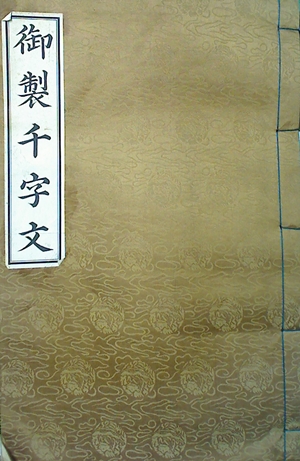 御製千字文